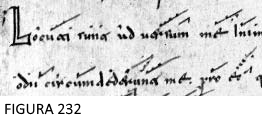 Locuti sunt ad uersum me
odii circumdederunt me. pro eo q
FIGURA 232